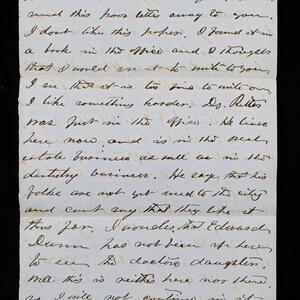 send this poor letter away to you.
I dont like this paper. I found it in
a book in the office and I thought
that I would use it to write to you
I see that it is too fine to write on
I like something harder. Dr.
was just in the office. He lives
here now and is in the real
estate business as well as in the
dentistry business. He say that his
folks are not yet used to the city
and cant say that they like it
thus far. I wonder, that Edward
Dunn has not been up here
to see the doctors daughter.
Well this is neither here nor there
so I will not continue in it